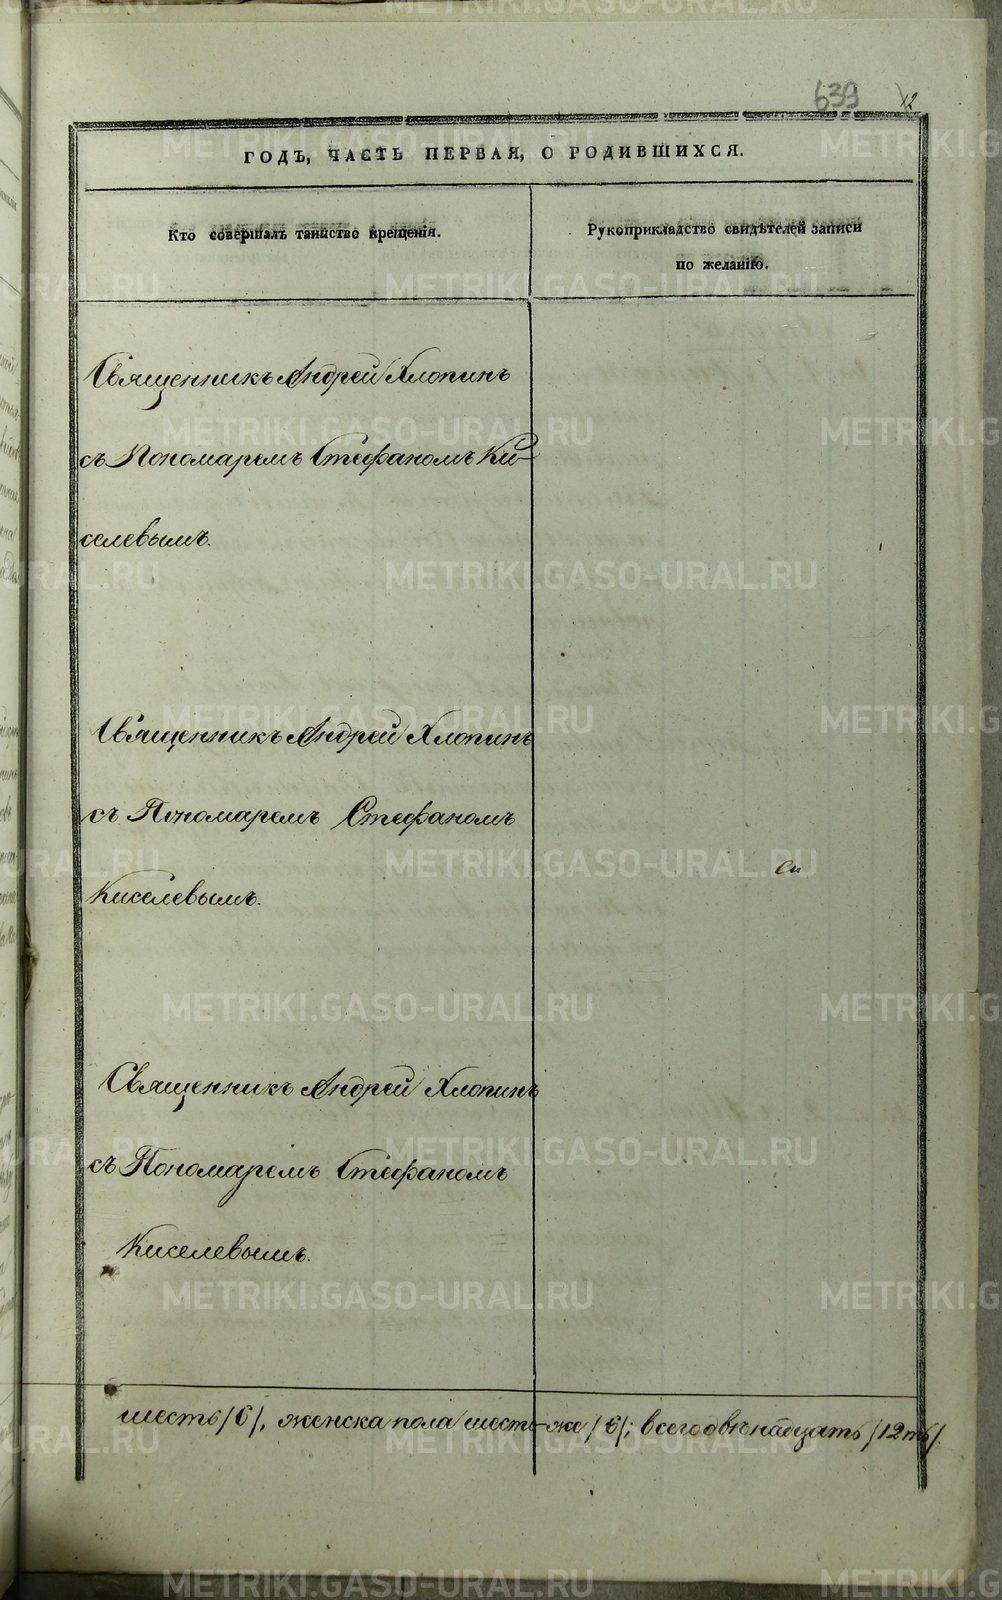 639 12
ГОДЪ, ЧАСТЬ ПЕРВАЯ, О РОДИВШИХСЯ.
Кто совершалъ таинство крещенія.
Рукоприкладство свидѣтелей записи
по желанію.
Священникъ Андрей Хлопинъ
съ Пономаремъ Стефаномъ Ки-
селевымъ.
Священникъ Андрей Хлопинъ
съ Пономаремъ Стефаномъ
Киселевымъ.
Священникъ Андрей Хлопинъ
съ Пономаремъ Стефаномъ
Киселевымъ.
шесть /6/, женска пола шесть-же /6/; всего двѣнадцать /12ть/.
METRIKI.GASO-URAL.RU